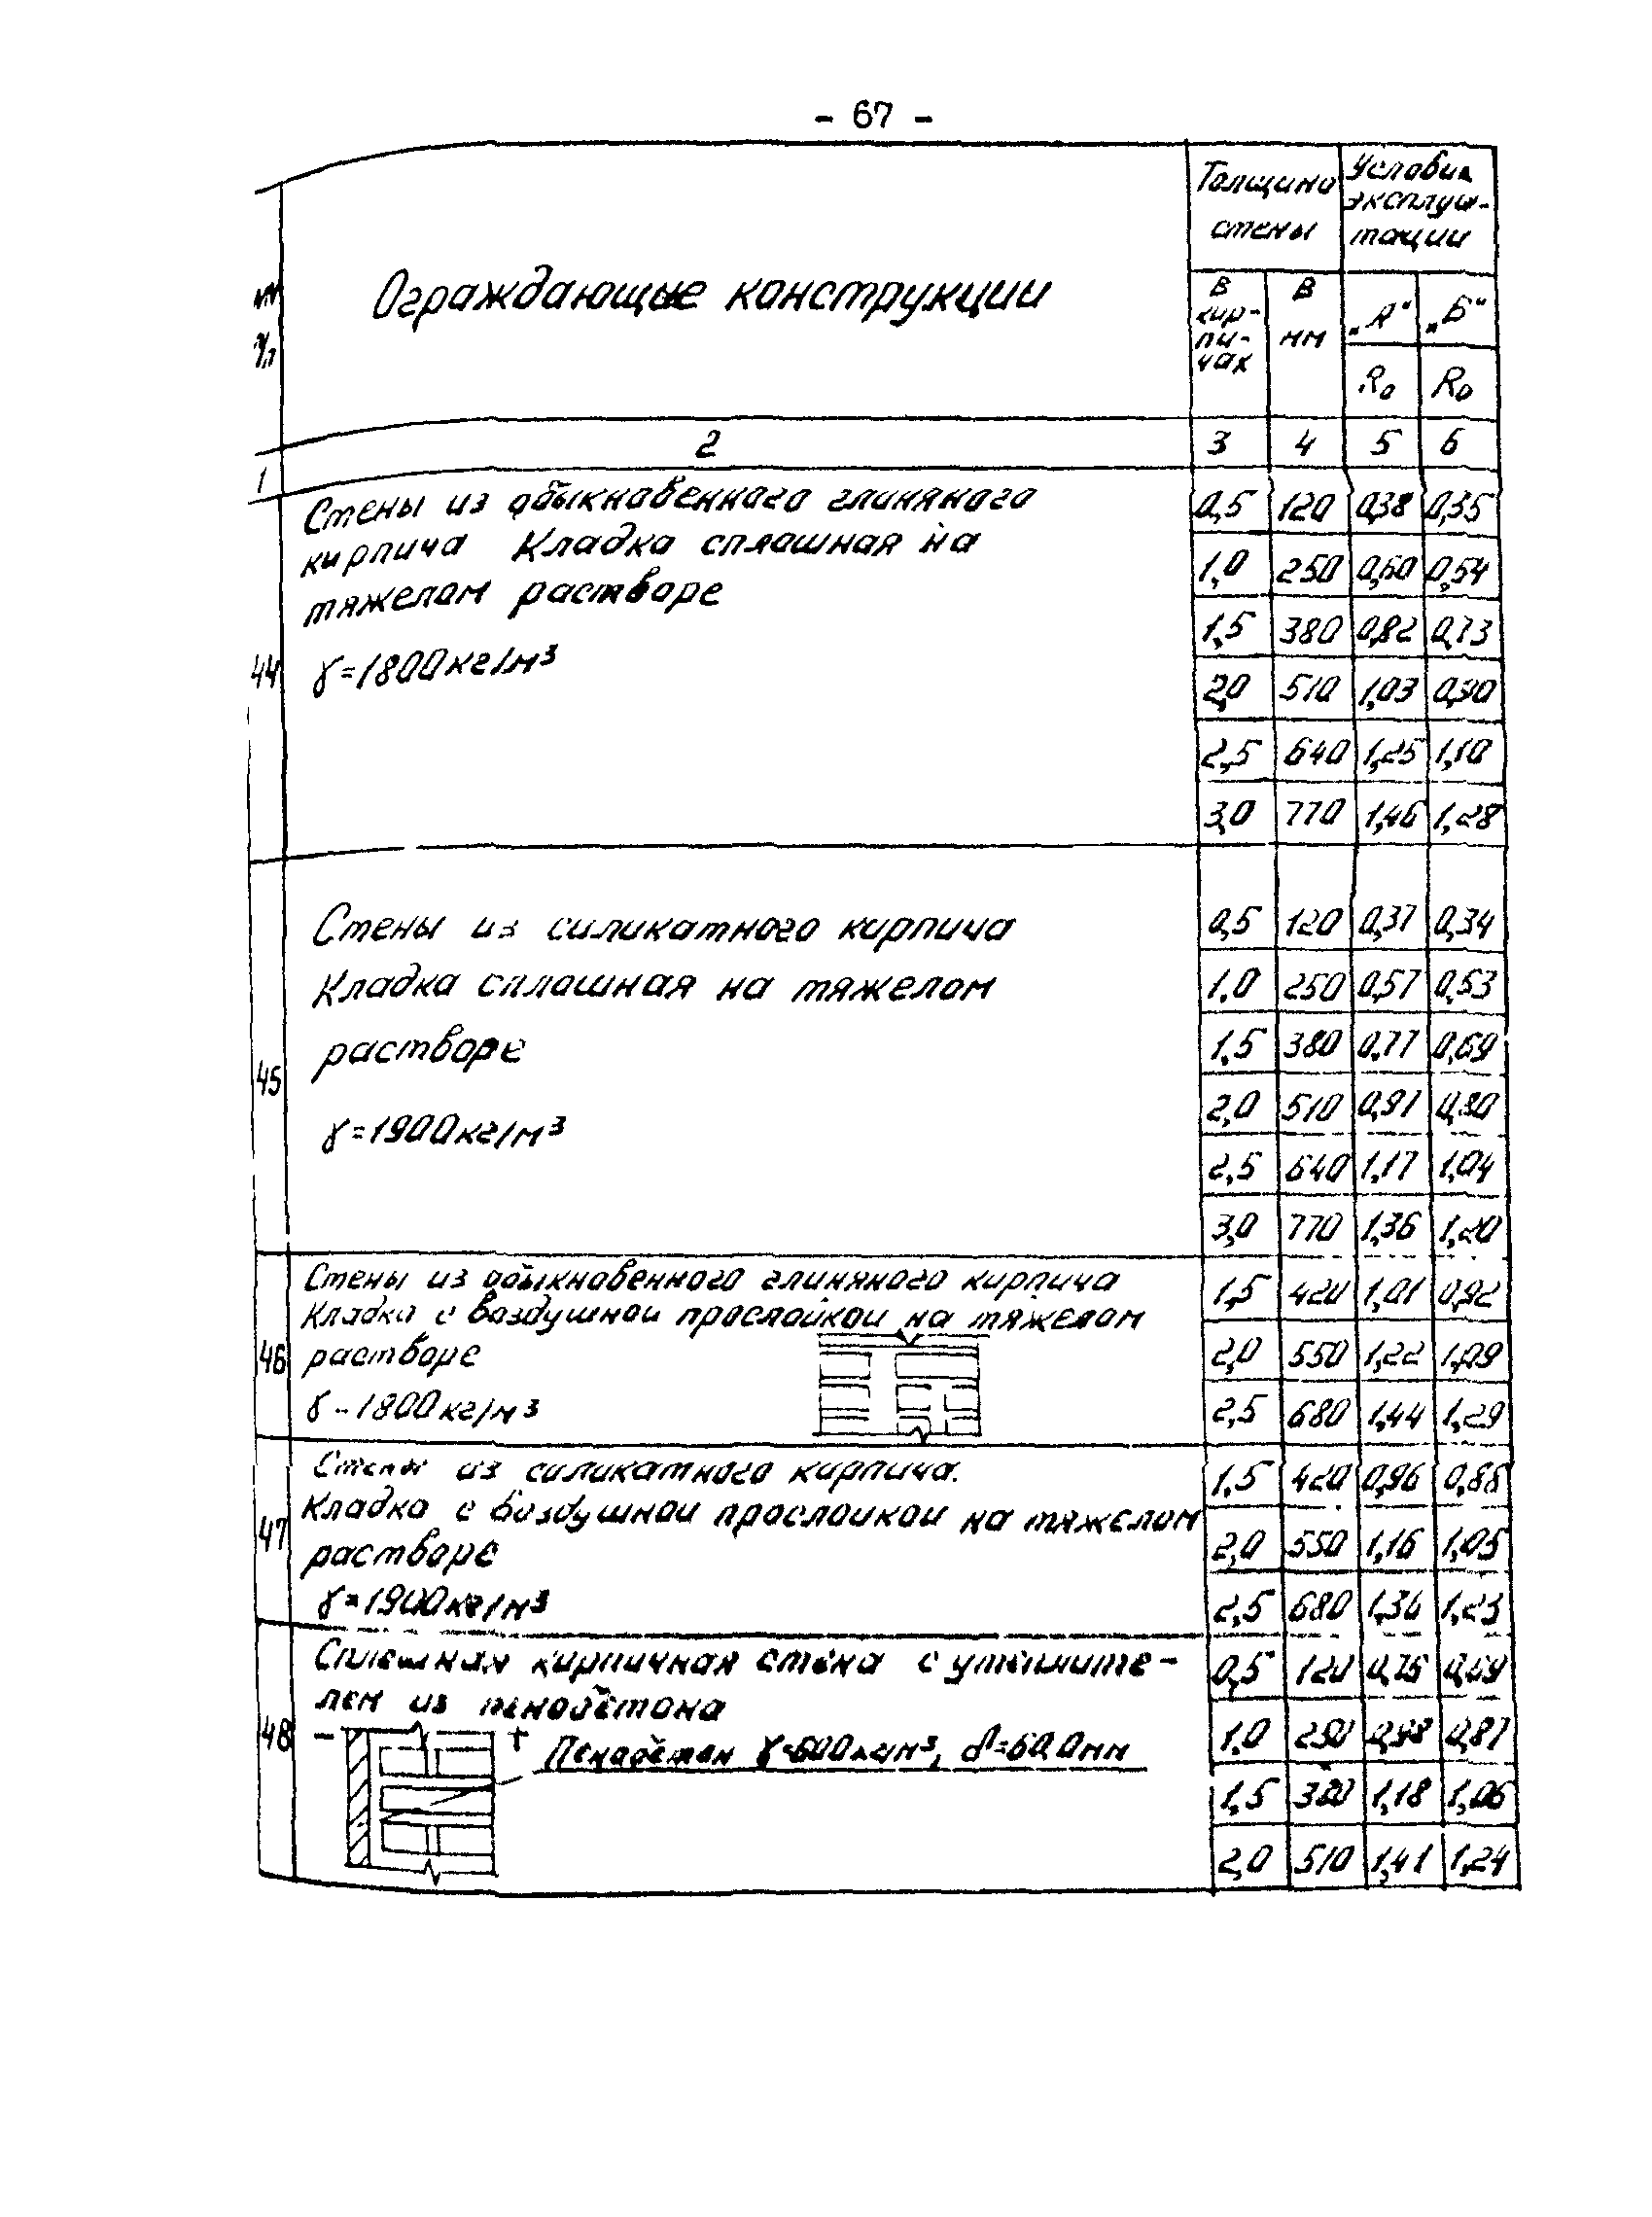 - 67 -
Толщина Условия
эксплуа-
стены тации
NN
п/п
Ограждающие конструкции
В
кир-
пи-
чах
В
мм
„А" „Б"
R₀ R₀
1 2 3 4 5 6
44
Стены из обыкновенного глиняного
кирпича Кладка сплошная на
тяжелом растворе
γ=1800кг/м³
0,5 120 0,38 0,35
1,0 250 0,60 0,54
1,5 380 0,82 0,73
2,0 510 1,03
2,5 640 1,25 1,10
3,0 770 1,46 1,28
45
Стены из силикатного кирпича
Кладка сплошная на тяжелом
растворе
γ=1900кг/м³
0,5 120 0,37 0,34
1,0 250 0,57 0,53
1,5 380 0,77 0,69
2,0 510 0,91
2,5 640 1,17 1,04
3,0 770 1,36 1,20
46
Стены из обыкновенного глиняного кирпича
Кладка с воздушной прослойкой на тяжелом
растворе
γ-1800кг/м³
1,5 420 1,01 0,92
2,0 550 1,22 1,09
2,5 680 1,44 1,29
47
Стены из силикатного кирпича.
Кладка с воздушной прослойкой на тяжелом
растворе
γ=1900кг/м³
1,5 420 0,96 0,88
2,0 550 1,16 1,05
2,5 680 1,23
48
Сплошная кирпичная стена с утеплите-
лем из пенобетона
- +
Пенобетон γ=600кг/м³, d=60,0мм
0,5 120 0,75 0,69
1,0 250 0,98 0,87
1,5 380 1,18 1,06
2,0 510 1,41 1,24